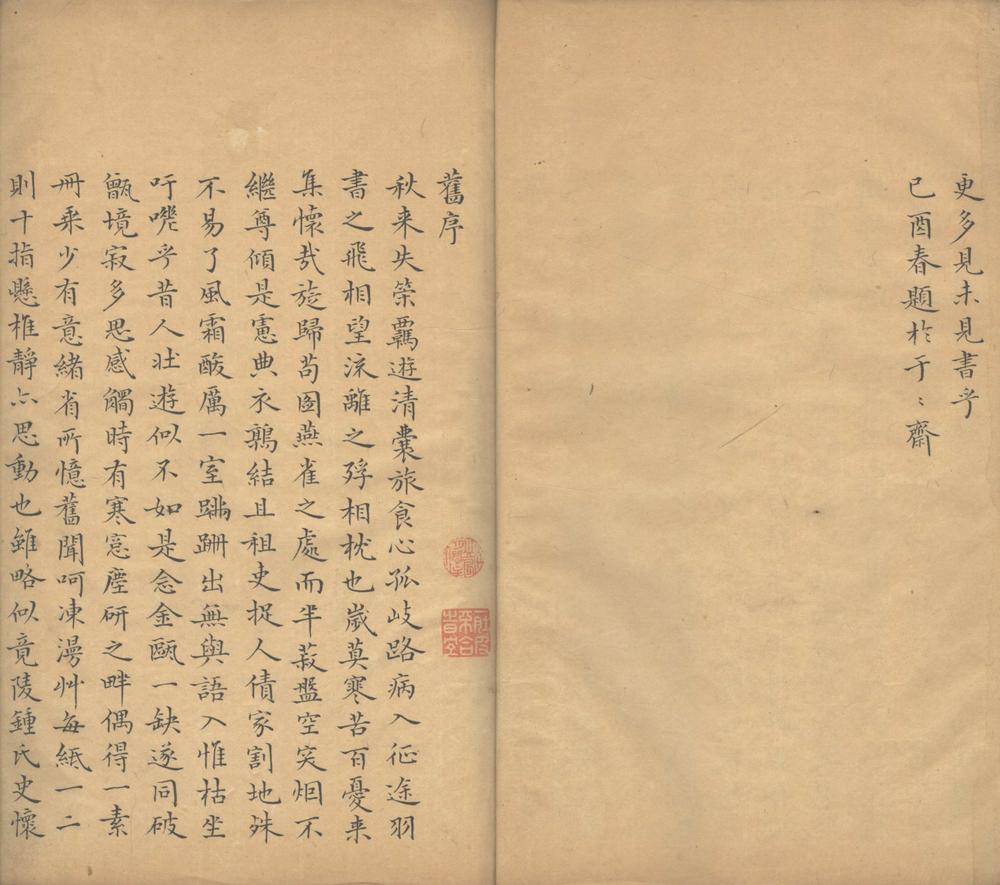 更多見未見書乎
已酉春題於于〻齋
舊序
秋来失策羈遊清橐旅食心孤岐路病入征途羽
書之飛相望流離之殍相枕也歲莫寒苦百憂来
集懷哉旋歸苟圖燕雀之處而半菽盤空突烟不
繼尊傾是慮典衣鶉結且租吏捉人債家割地殊
不易了風霜酸厲一室蹣跚出無與語入惟枯坐
吁嘆乎昔人壯遊似不如是念金甌一缺遂同破
甑境寂多思感觸時有寒窓塵研之畔偶得一素
冊乘少有意緒省所憶舊聞呵凍漫艸每紙一二
則十指懸椎靜亦思動也雖略似竟陵鍾氏史懷